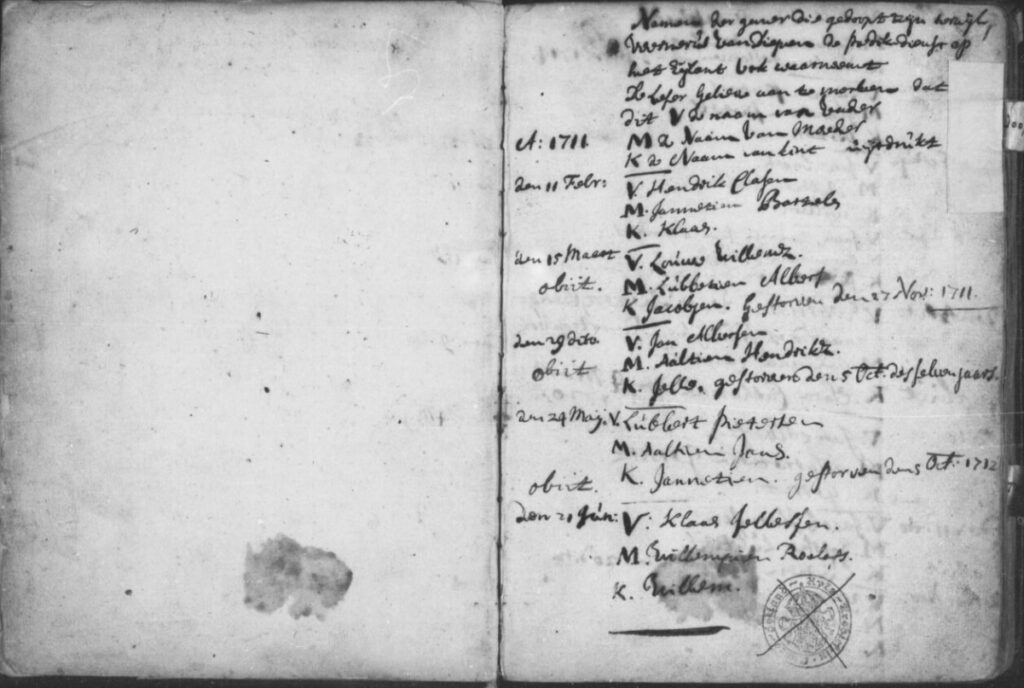 Namen der gener die gedoopt zijn terwijl
Wernerus van Diepen de predikdienst op
het Eylant Urk waarneemt
De leser gelieve aan te merken dat
dit V de naam van vader
A: 1711 M de Naam van Moeder
K de Naam van kint uijtdrükt
den 11 Febr: V. Hendrik Clasen
M. Jannetien Bartels
K. Klaas.
den 15 Maart V. Louwe Willemdz.
obiit. M. Lübbetien Albert
K Jacobjen. Gestorven den 27 Nov: 1711.
den 29 dito V. Jan Albertsen
obiit M. Aaltien Hendrikz.
K. Jelle. gestorven den 5 Oct. des selven jaars.
den 24 Maij. V. Lübbert Pietersen
M. Aaltien Jans.
obiit. K. Jannetien. gestorven den 5 Oct. 1712
den 21 Jün: V. Klaas Jelles
M. Willempien Roelofs.
K. Willem.